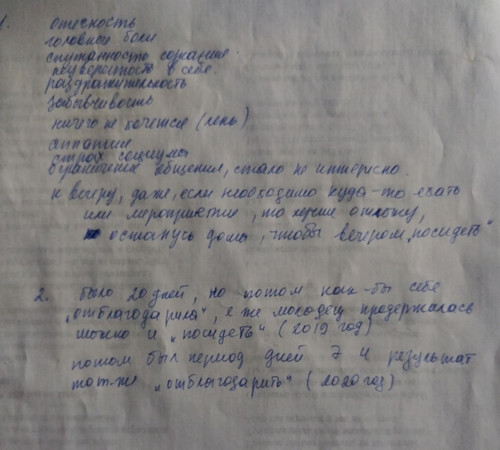 1. отечность
головные боли
спутанность сознания.
неуверенность в себе.
раздражительность
забывчивость
ничего не хочется (лень)
аппатия
страх социума
ограничения общения, стало не интересно.
к вечеру, даже, если необходимо куда-то ехать
или мероприятие, то лучше отложу,
останусь дома, чтобы вечером „посидеть"
2. Было 20 дней, но потом как-бы себе
„отблагодарила", я же молодец продержалась
можно и „посидеть" (2019 год)
потом был период дней 7 и результат
тот-же „отблагодарить" (2020 год)